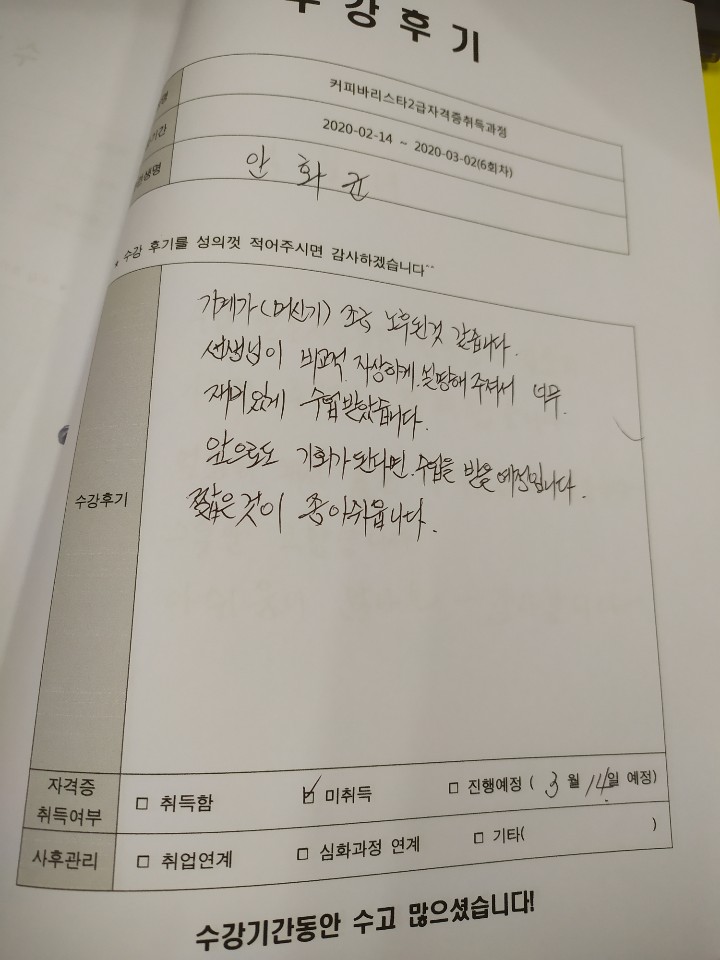 수강후기
명 커피바리스타2급자격증취득과정
기간 2020-02-14 ~ 2020-03-02(6회차)
생명 안화균
수강 후기를 성의껏 적어주시면 감사하겠습니다^^
수강후기
기계가(머신기) 조금 노후된것 같습니다.
선생님이 비교적 자상하게. 설명해 주셔서 너무.
재미있게 수업받았습니다.
앞으로도 기회가 된다면. 수업을 받을 예정입니다.
짧은것이 좀 아쉬웁니다.
자격증
취득여부 □ 취득함 ☑ 미취득 □ 진행예정 ( 3 월 14일 예정)
사후관리 □ 취업연계 □ 심화과정 연계 □ 기타( )
수강기간동안 수고 많으셨습니다!